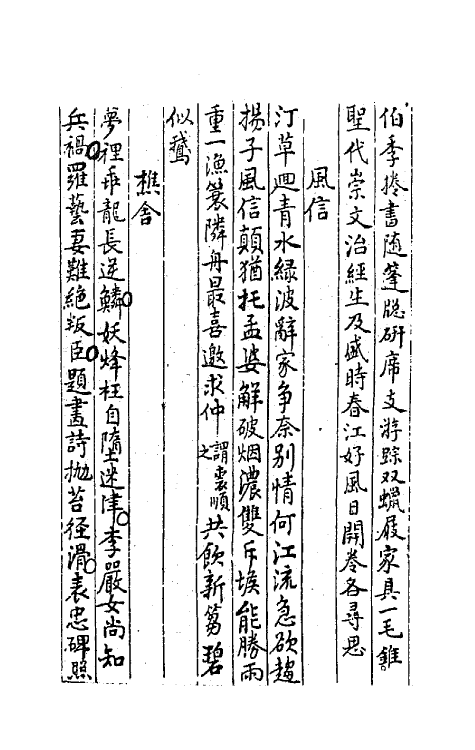 伯季捲書随篷牕研席支游踪双蠟屐家具一毛錐
聖代崇文治經生及盛時春江好風日開卷各尋思
風信
汀草迴青水緑波辭家争奈别情何江流急欲趨
揚子風信顛猶托孟婆解破烟濃雙斥堠能勝雨
重一漁簑隣舟最喜邀求仲謂裘順之共飲新篘碧
似鵞
樵舍
夢裡乖龍長逆鱗妖烽枉自墮迷津李嚴女尚知
兵禍羅藝妻難絶叛臣題畫詩抛苔徑滑表忠碑照